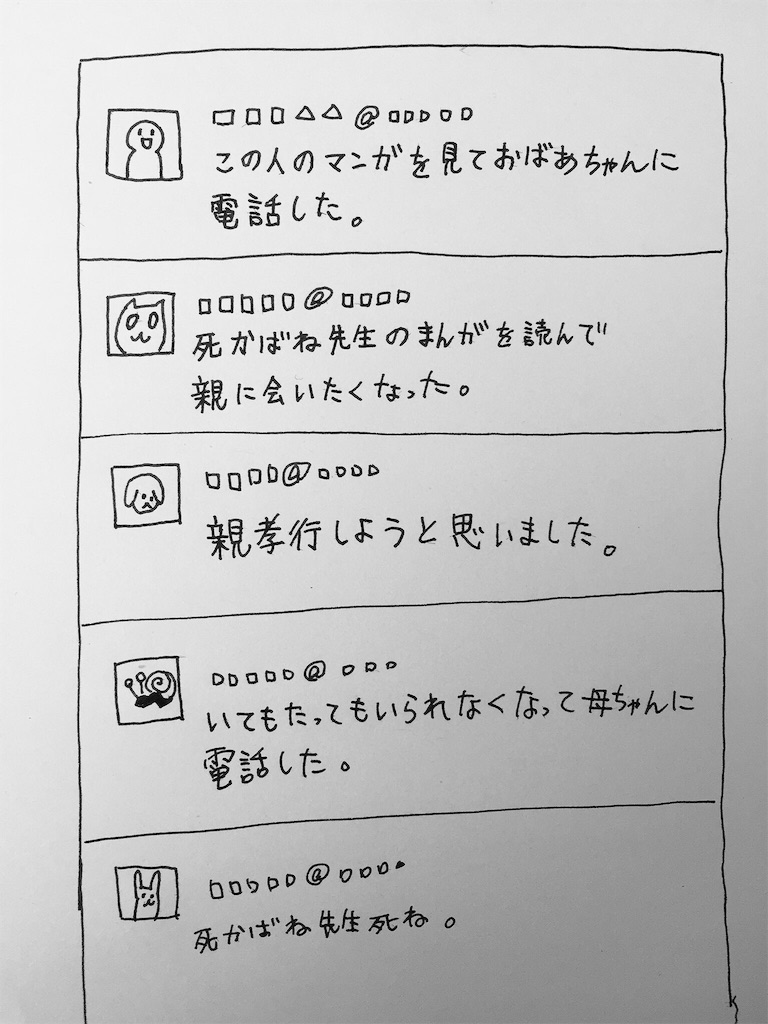 □□□△△@□□□□□
この人のマンガを見ておばあちゃんに
電話した。
□□□□□@□□□□
死かばね先生のまんがを読んで
親に会いたくなった。
□□□□@□□□□
親孝行しようと思いました。
□□□□□@□□□
いてもたってもいられなくなって母ちゃんに
電話した。
□□□□□@□□□▲
死かばね先生死ね。